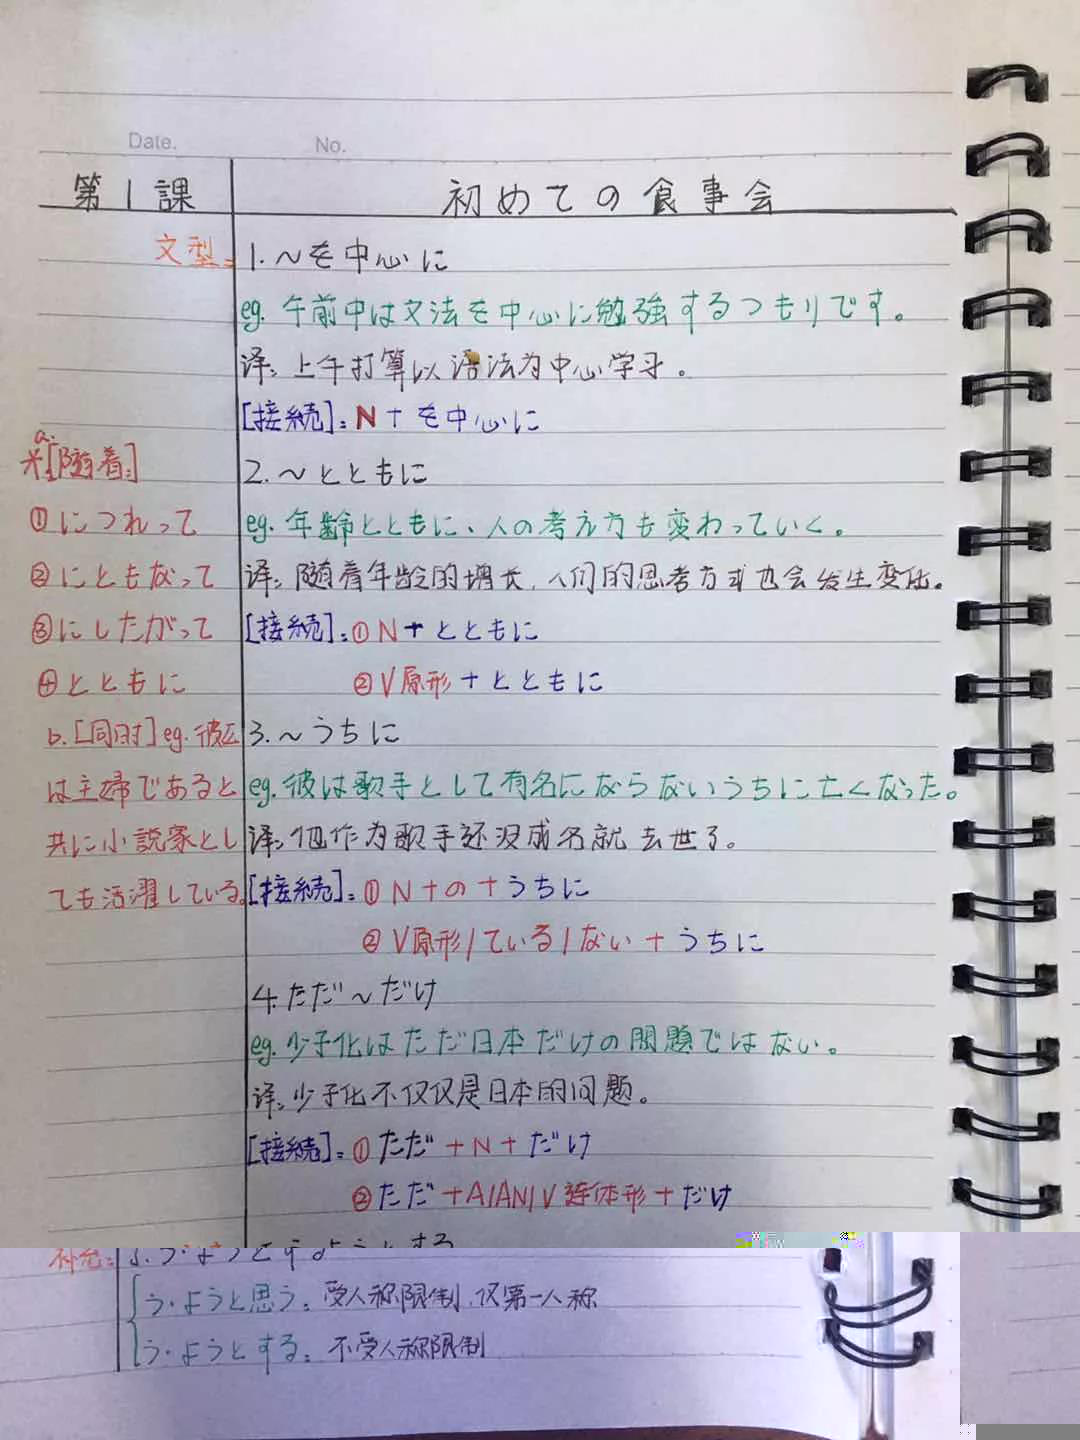 Date.
No.
第1課
初めての食事会
文型:
1.～を中心に
eg. 午前中は文法を中心に勉強するつもりです。
译: 上午打算以语法为中心学习。
[接続]: N+を中心に
a.
※[随着:]
①につれって
②にともなって
③にしたがって
④とともに
b.[同时] eg. 彼女
は主婦であると
共に小説家とし
ても活濯している。
2.～とともに
eg. 年齢とともに、人の考え方も変わっていく。
译: 随着年龄的增长,人们的思考方式也会发生变化。
[接続]: ①N+とともに
②V原形+とともに
3.～うちに
eg. 彼は歌手として有名にならないうちに亡くなった。
译: 他作为歌手还没成名就去世了。
[接続]: ①N+の+うちに
②V原形/ている/ない+うちに
4.ただ～だけ
eg. 少子化はただ日本だけの問題ではない。
译: 少子化不仅仅是日本的问题。
[接続]: ①ただ+N+だけ
②ただ+A/AN/V連体形+だけ
补充:
う・ようと思う: 受人称限制,仅第一人称
う・ようとする: 不受人称限制